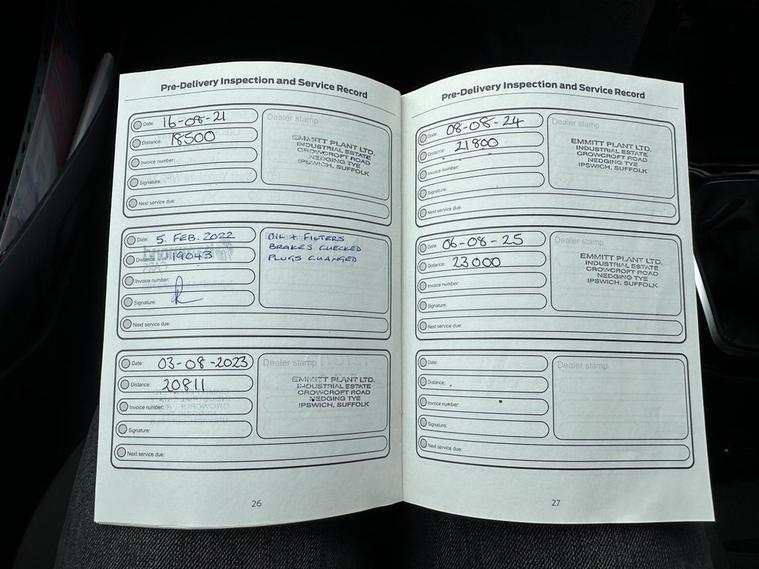 Pre-Delivery Inspection and Service Record
Date: 16-08-21
Distance: 18500
Invoice number:
Signature:
Next service due:
Dealer stamp
EMMITT PLANT LTD.
INDUSTRIAL ESTATE
CROWCROFT ROAD
NEDGING TYE
IPSWICH, SUFFOLK
Date: 5. FEB. 2022
Distance: 19043
Invoice number:
Signature:
Next service due:
OIL + FILTERS
BRAKES CHECKED
PLUGS CHANGED
Date: 03-08-2023
Distance: 20811
Invoice number:
Signature:
Next service due:
Dealer stamp
EMMITT PLANT LTD.
INDUSTRIAL ESTATE
CROWCROFT ROAD
NEDGING TYE
IPSWICH, SUFFOLK
26
Pre-Delivery Inspection and Service Record
Date: 08-08-24
Distance: 21800
Invoice number:
Signature:
Next service due:
Dealer stamp
EMMITT PLANT LTD.
INDUSTRIAL ESTATE
CROWCROFT ROAD
NEDGING TYE
IPSWICH, SUFFOLK
Date: 06-08-25
Distance: 23000
Invoice number:
Signature:
Next service due:
Dealer stamp
EMMITT PLANT LTD.
INDUSTRIAL ESTATE
CROWCROFT ROAD
NEDGING TYE
IPSWICH, SUFFOLK
Date:
Distance:
Invoice number:
Signature:
Next service due:
Dealer stamp
27